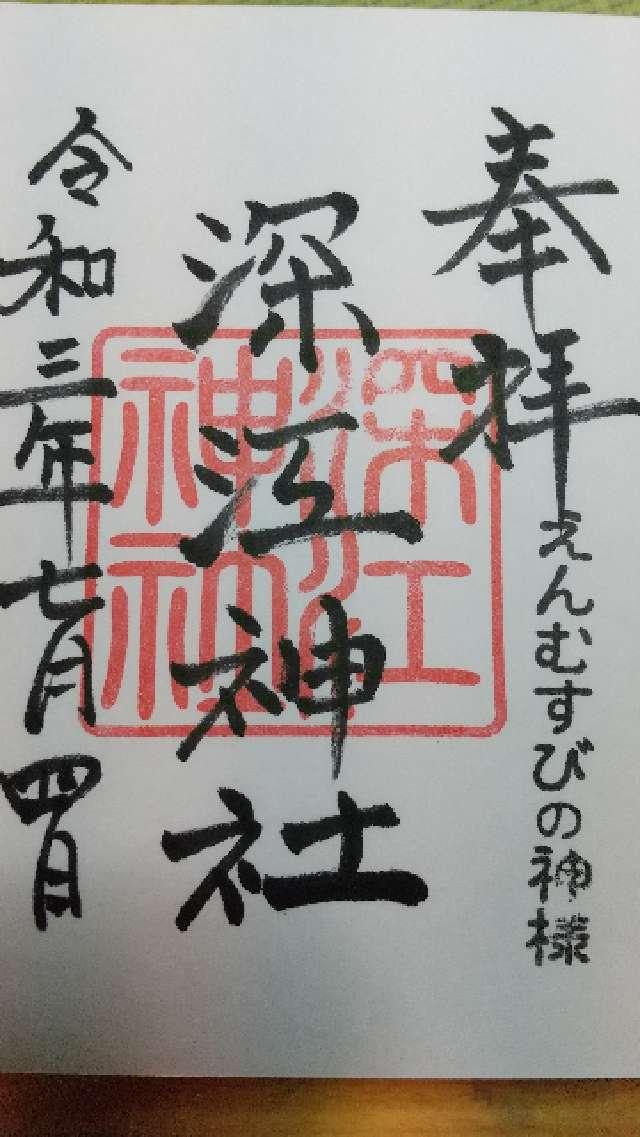 奉拝
えんむすびの神様
深江神社
深江
神社
令和三年七月四日